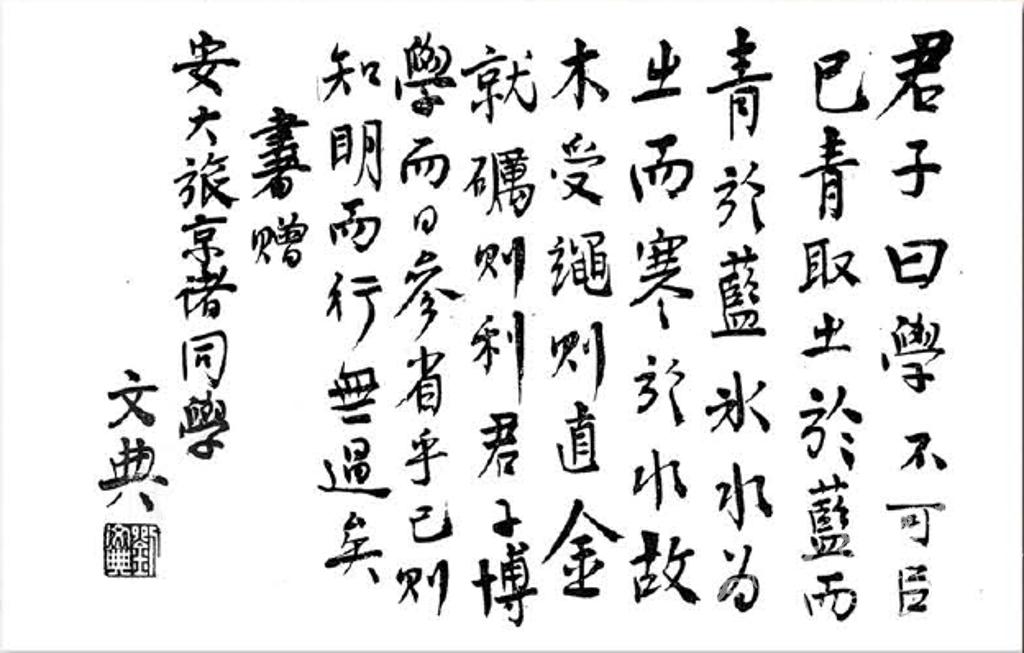 君子曰學不可㠯
已青取之於藍而
青於藍冰水為
之而寒於水故
木受繩則直金
就礪則利君子博
學而日參省乎己則
知明而行無過矣
書贈
安大旅京諸同學
文典
劉文典